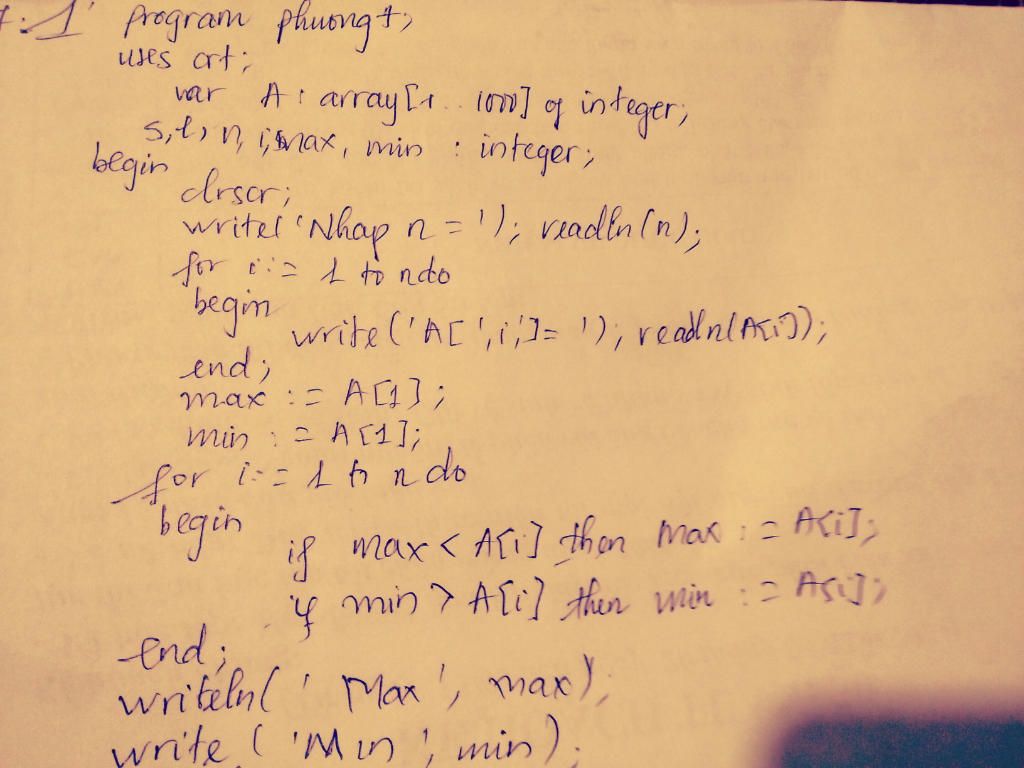 1 program phuongt;
uses crt;
var A : array[1 .. 1000] of integer;
s, t, n, i, max, min : integer;
begin
clrscr;
write('Nhap n = '); readln(n);
for i := 1 to n do
begin
write('A[',i,']= '); readln(A[i]);
end;
max := A[1];
min := A[1];
for i := 1 to n do
begin
if max < A[i] then max := A[i];
if min > A[i] then min := A[i];
end;
writeln( ' Max ', max);
write ( 'Min ', min);